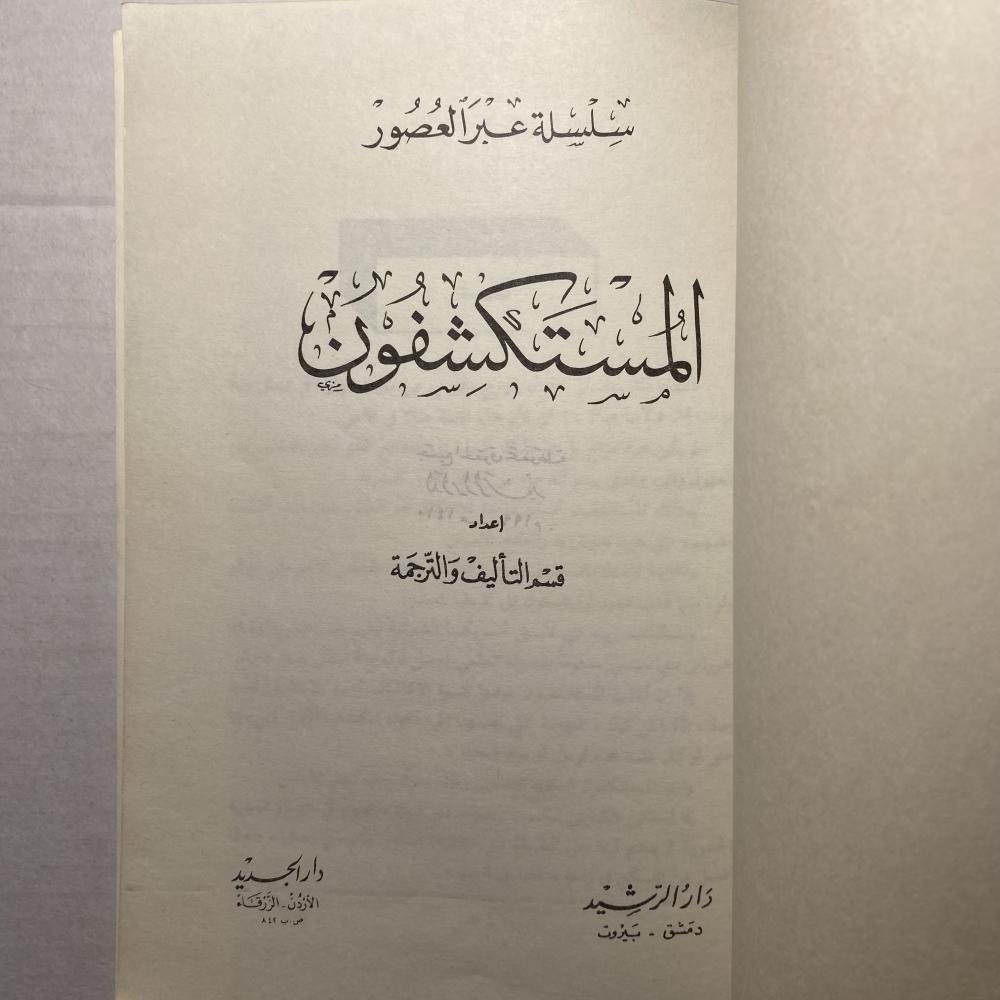 سِلْسِلة عبْرَ العُصُور
المُسْتَكشِفُونَ
اعداد
قسْم التأليف وَالتّرجَمة
دَارُ الرّشِيْد
دمَشق - بَيْروت
دار الجديد
الأرْدُنْ - الزّرْقَاء
ص.ب ٨٤٢